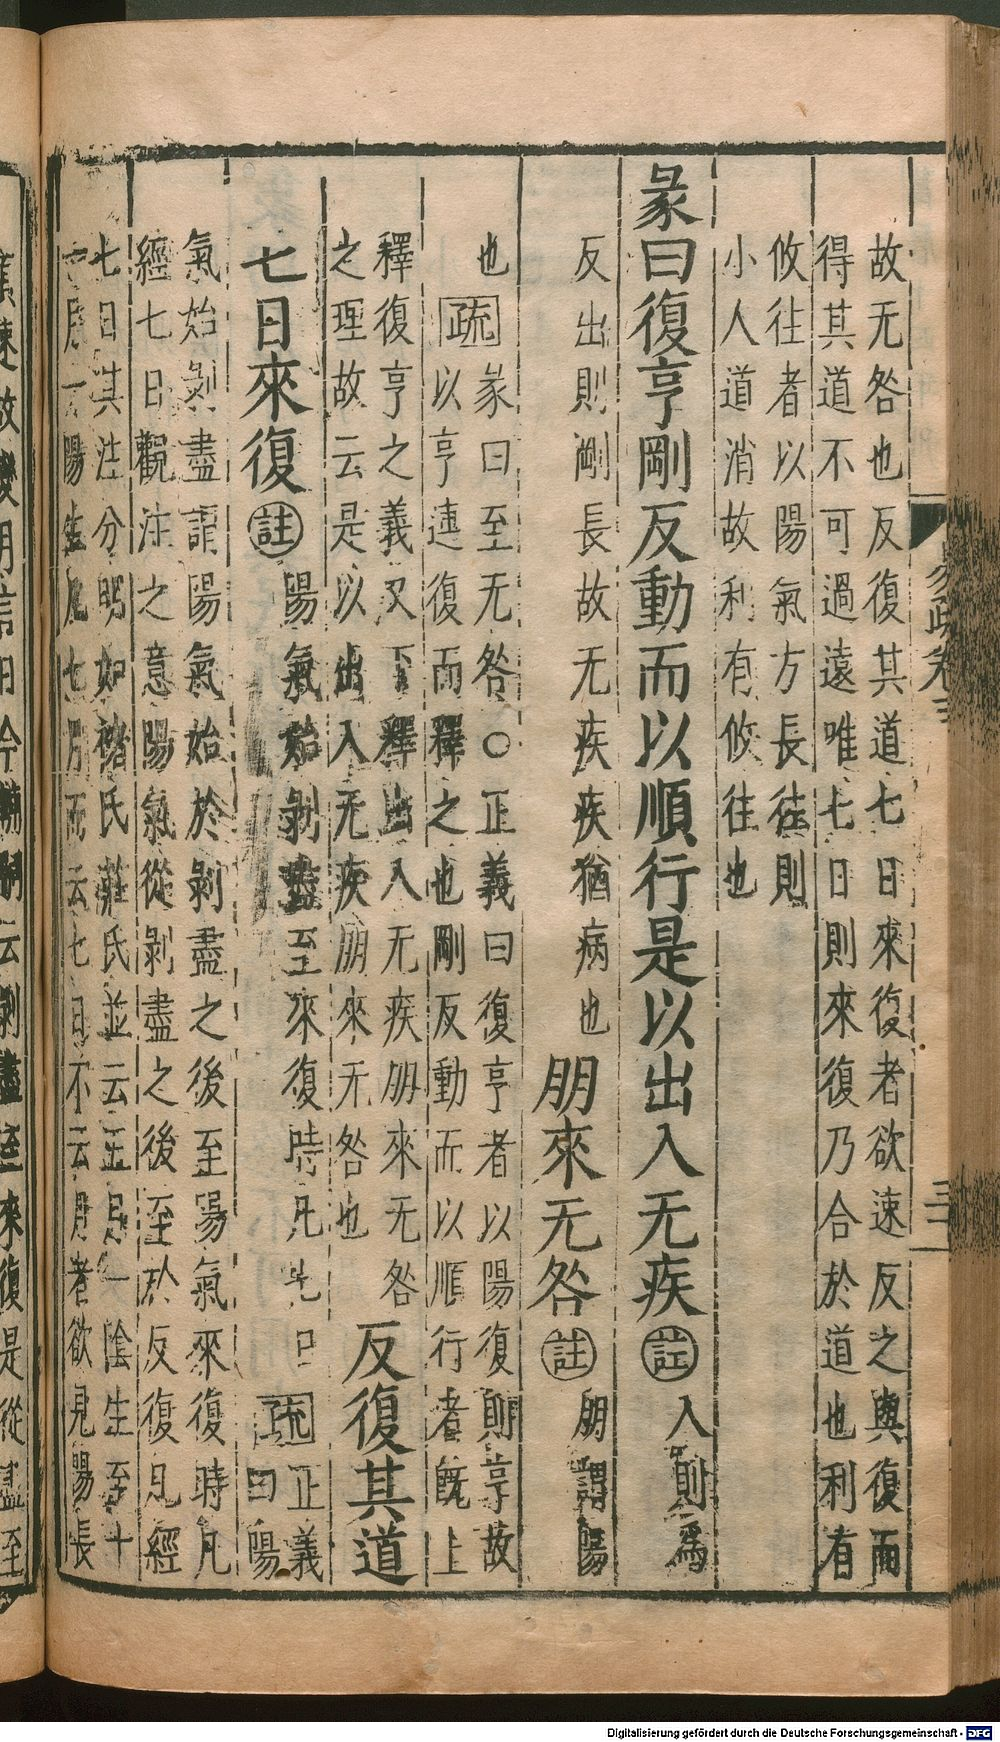 故无咎也反復其道七日來復者欲速反之與復而
得其道不可過遠唯七日則來復乃合於道也利有
攸往者以陽氣方長往則
小人道消故利有攸往也
彖曰復亨剛反動而以順行是以出入无疾註入則為
反出則剛長故无疾疾猶病也朋來无咎註朋謂陽
也疏彖曰至无咎○正義曰復亨者以陽復則亨故
以亨連復而釋之也剛反動而以順行者既上
釋復亨之義又下釋出入无疾朋來无咎
之理故云是以出入无疾朋來无咎也反復其道
七日來復註陽氣始剝盡至來復時凡七日疏正義
曰陽
氣始剝盡謂陽氣始於剝盡之後至陽氣來復時凡
經七日觀注之意陽氣從剝盡之後至於反復凡經
七日其注分明如褚氏莊氏並云五月一陰生至十
一月一陽生凡七月而云七日不云月者欲見陽長
易疏卷三
三
Digitalisierung gefördert durch die Deutsche Forschungsgemeinschaft - DFG